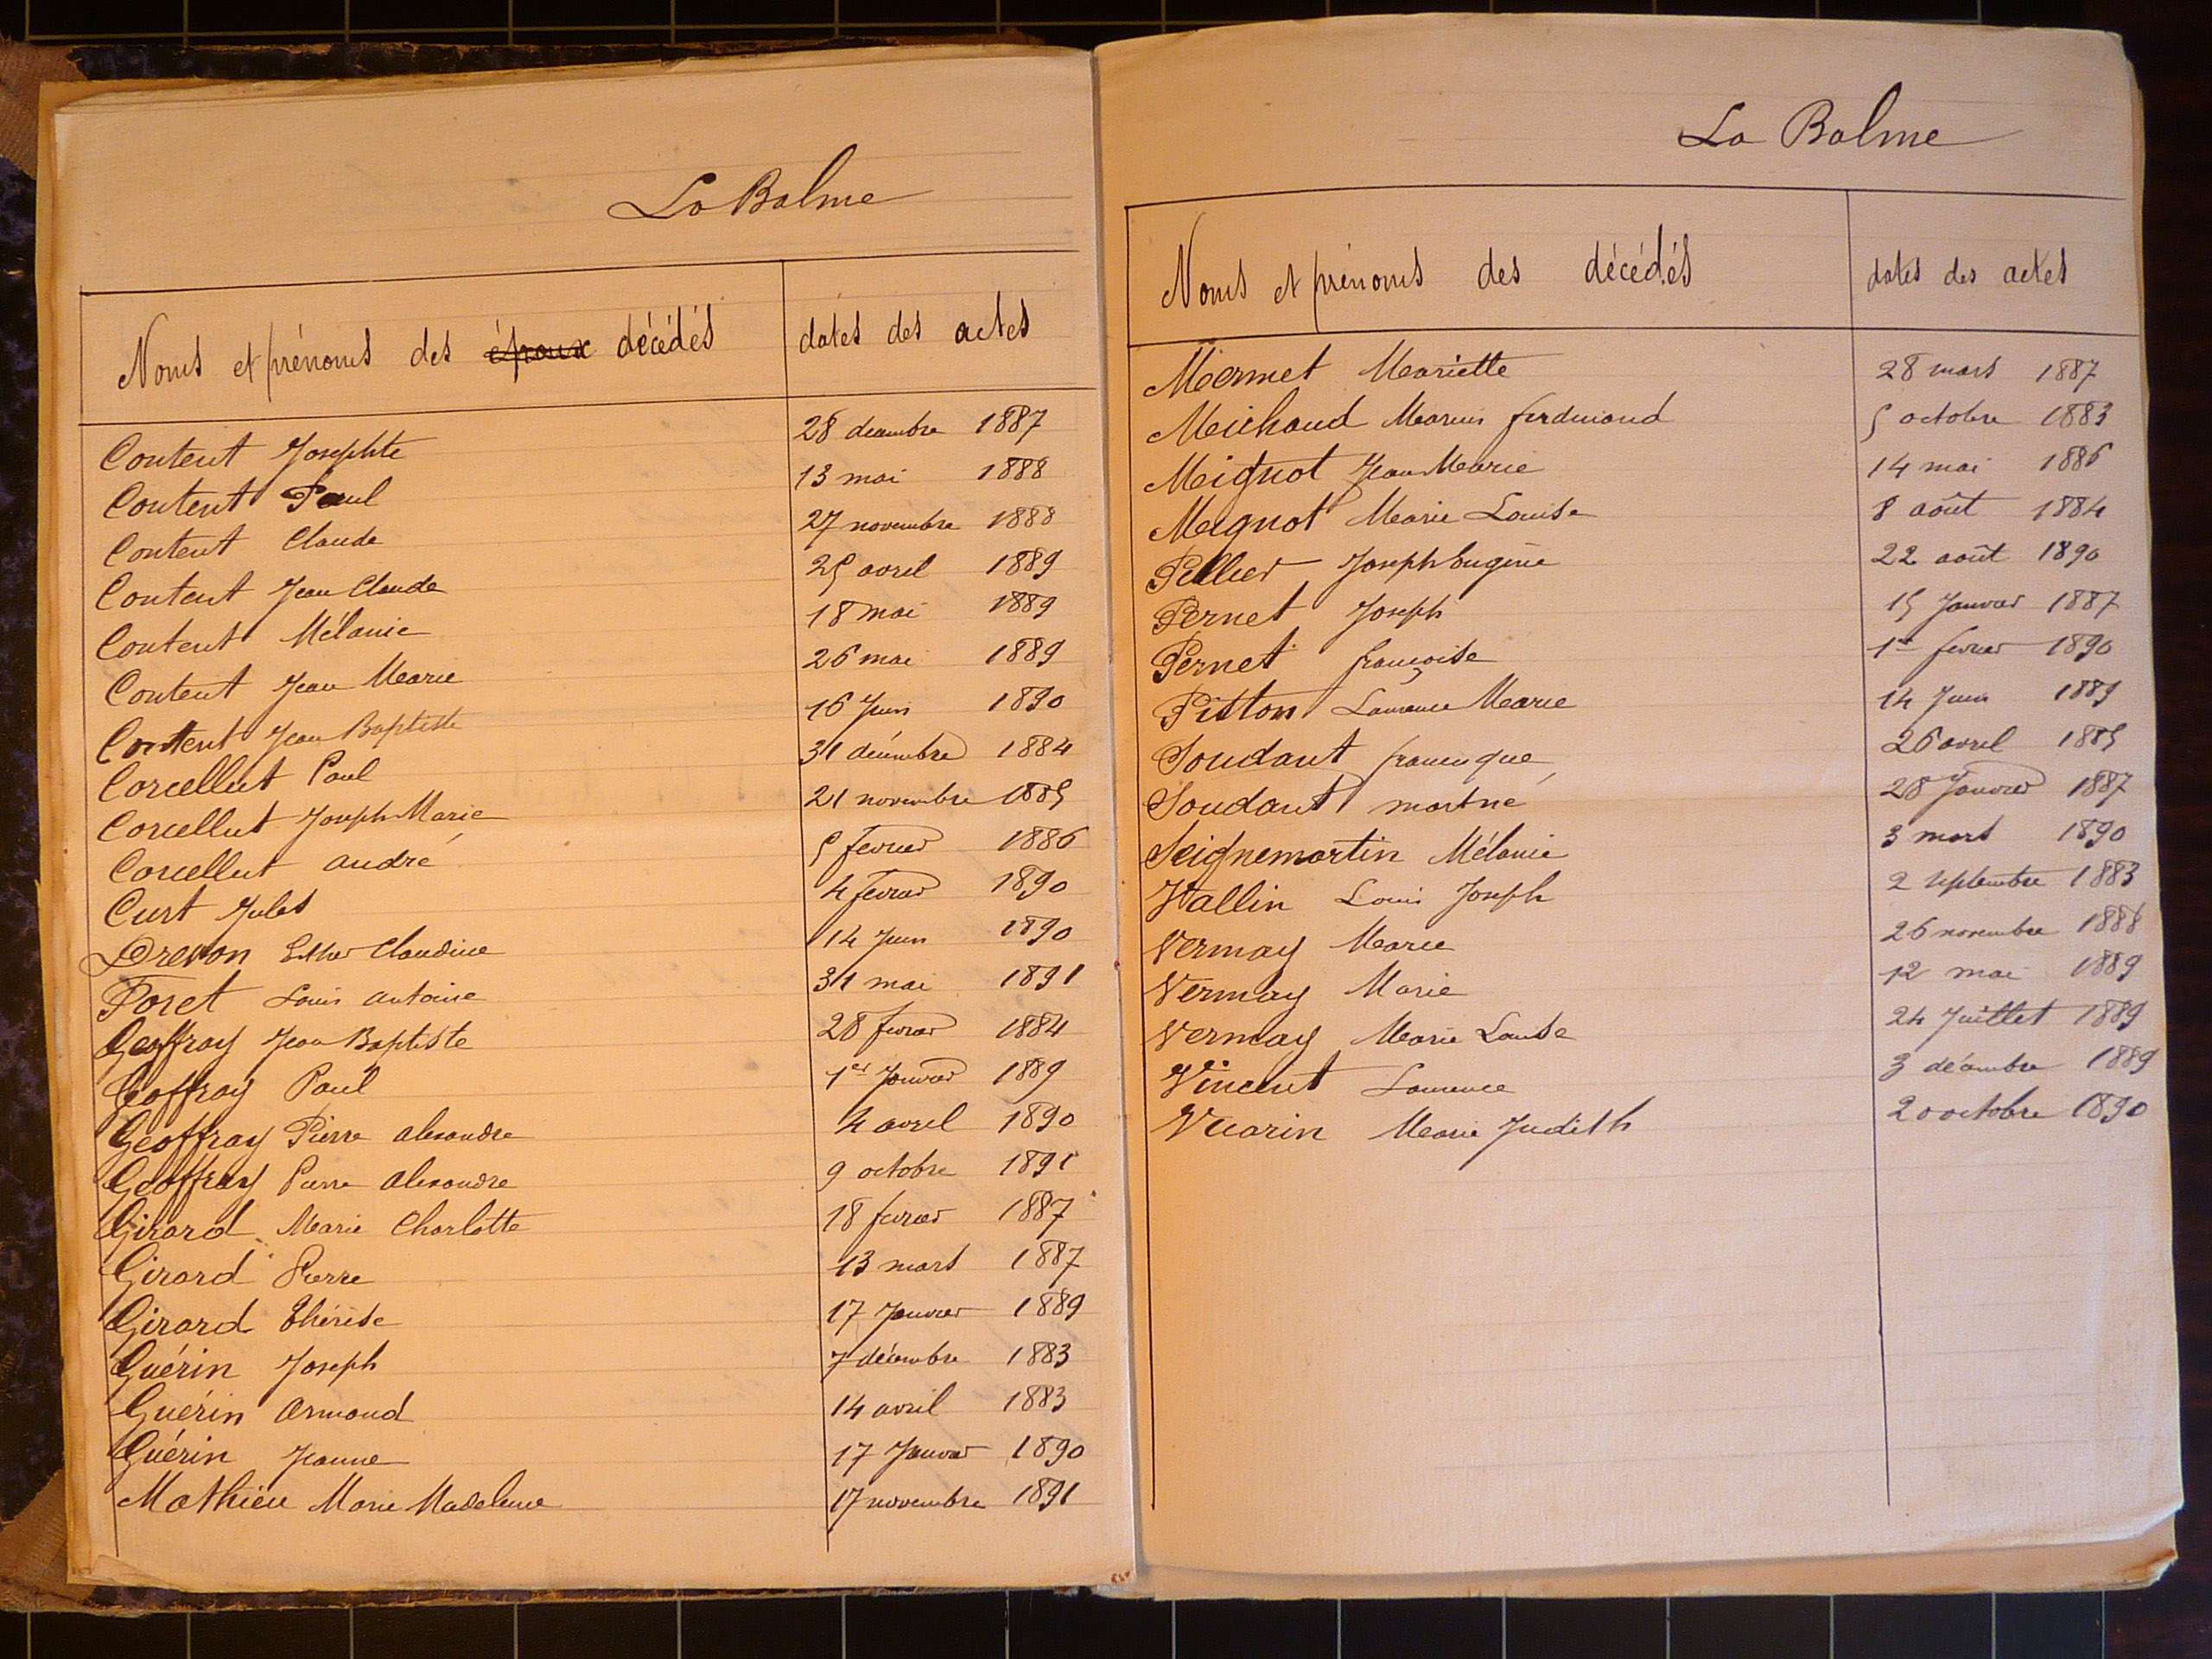 La Balme
Noms et prénoms des époux décédés dates des actes
Content Josephte 28 décembre 1887
Content Paul 13 mai 1888
Content Claude 27 novembre 1888
Content Jean Claude 25 avril 1889
Content Mélanie 18 mai 1889
Content Jean Marie 26 mai 1889
Content Jean Baptiste 16 Juin 1890
Corcellut Paul 31 décembre 1884
Corcellut Joseph Marie 21 novembre 1885
Corcellut andré 5 fevrier 1886
Curt Jules 4 fevrier 1890
Drevon Esther Claudine 14 Juin 1890
Foret Louis antoine 31 mai 1891
Geoffray Jean Baptiste 28 fevrier 1884
Geoffray Paul 1er Janvier 1889
Geoffray Pierre alexandre 4 avril 1890
Geoffray Pierre alexandre 9 octobre 1891
Girard Marie Charlotte 18 fevrier 1887
Girard Pierre 13 mars 1887
Girard Thérèse 17 Janvier 1889
Guérin Joseph 7 décembre 1883
Guérin Armand 14 avril 1883
Guérin Jeanne 17 Janvier 1890
Mathieu Marie Madeleine 17 novembre 1891
La Balme
Noms et prénoms des décédés dates des actes
Mermet Mariette 28 mars 1887
Michaud Marius ferdinand 5 octobre 1883
Mignot Jean Marie 14 mai 1886
Mignot Marie Louise 8 août 1884
Pellier Joseph Eugène 22 août 1890
Pernet Joseph 15 Janvier 1887
Pernet françoise 1er fevrier 1890
Pitton Laurence Marie 14 Juin 1889
Soudant franc̨ique 26 avril 1885
Soudant mort né 28 Janvier 1887
Seignemartin Mélanie 3 mars 1890
Vallin Louis Joseph 2 septembre 1883
Vermay Marie 26 novembre 1888
Vermay Marie 12 mai 1889
Vermay Marie Louise 24 Juillet 1889
Vincent Laurence 3 décembre 1889
Vuarin Marie Judith 20 octobre 1890